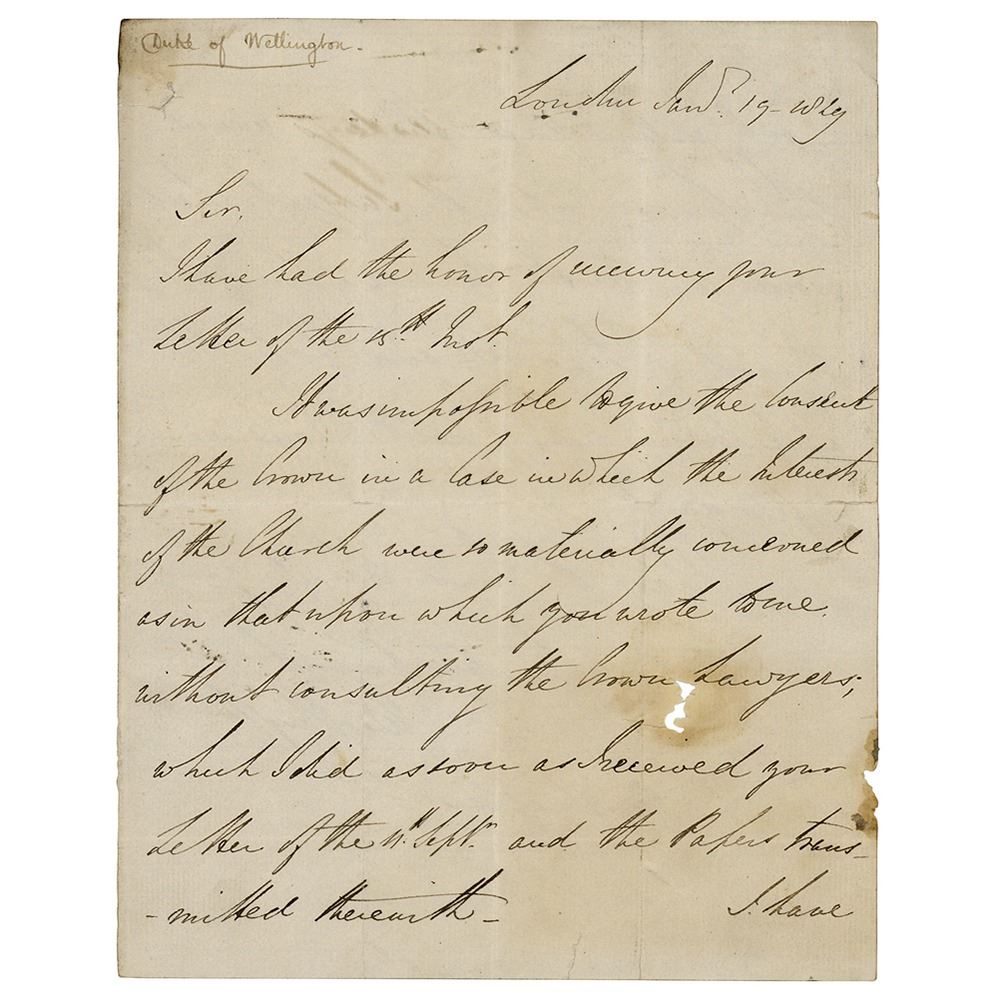 Duke of Wellington.
London Jany. 19 - 1829
Sir,
I have had the honor of receiving your
Letter of the 15th Inst.
It was impossible to give the Consent
of the Crown in a Case in which the Interests
of the Church were so materially concerned
as in that upon which you wrote to me.
without consulting the Crown Lawyers;
which I did as soon as I received your
Letter of the 11th Septr. and the Papers trans-
- mitted therewith -
I have